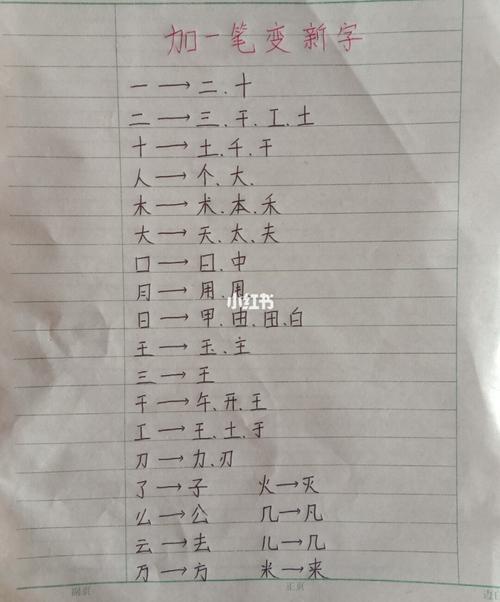 加一笔变新字
一→二.十
二→三.干.工.土
十→土.千.干
人→个.大.
木→术.本.禾
大→天.太.夫
口→日.中
月→用.甩
小红书
日→甲.由.田.白
王→玉.主
三→王
干→午.开.王
工→王.土.于
刀→力.刃
了→子 火→灭
么→公 几→凡
云→去 儿→几
万→方 米→来
正页